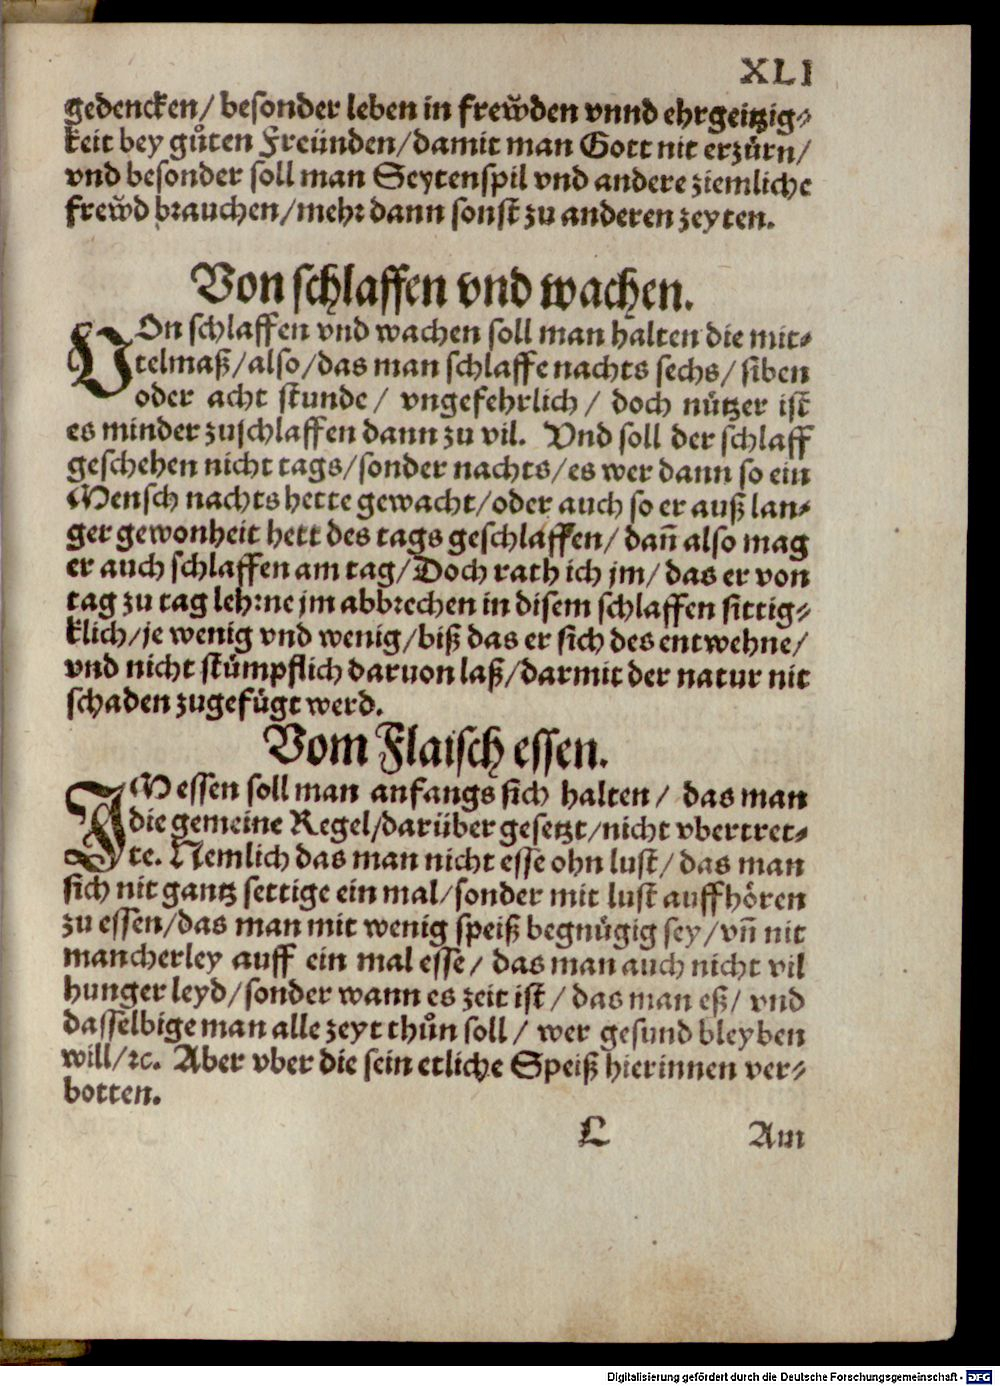 XLI
gedencken/ besonder leben in frew̆den vnnd ehrgeitzig⸗
keit bey gůten Freünden/damit man Gott nit erzürn/
vnd besonder soll man Seytenspil vnd andere ziemliche
frew̆d brauchen/mehr dann sonst zu anderen zeyten.
Von schlaffen vnd wachen.
VOn schlaffen vnd wachen soll man halten die mit⸗
telmaß/also/das man schlaffe nachts sechs/ siben
oder acht stunde/ vngefehrlich/ doch nützer ist
es minder zuschlaffen dann zu vil. Vnd soll der schlaff
geschehen nicht tags/sonder nachts/es wer dann so ein
Mensch nachts hette gewacht/oder auch so er auß lan⸗
ger gewonheit hett des tags geschlaffen/ dañ also mag
er auch schlaffen am tag/Doch rath ich jm/ das er von
tag zu tag lehrne jm abbrechen in disem schlaffen sittig⸗
klich/je wenig vnd wenig/biß das er sich des entwehne/
vnd nicht stümpflich daruon laß/darmit der natur nit
schaden zugefügt werd.
Vom Flaisch essen.
IM essen soll man anfangs sich halten/ das man
die gemeine Regel/darüber gesetzt/nicht vbertret⸗
te. Nemlich das man nicht esse ohn lust/ das man
sich nit gantz settige ein mal/sonder mit lust auffhören
zu essen/das man mit wenig speiß begnügig sey/vñ nit
mancherley auff ein mal esse/ das man auch nicht vil
hunger leyd/sonder wann es zeit ist/ das man eß/ vnd
dasselbige man alle zeyt thůn soll/ wer gesund bleyben
will/ꝛc. Aber vber die sein etliche Speiß hierinnen ver⸗
botten.
L Am
Digitalisierung gefördert durch die Deutsche Forschungsgemeinschaft - DFG